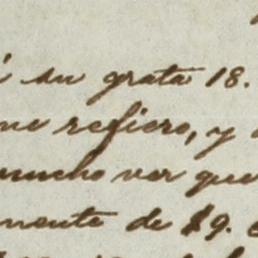 su grata 18.
me refiero, y
mucho ver que
mente de $9.